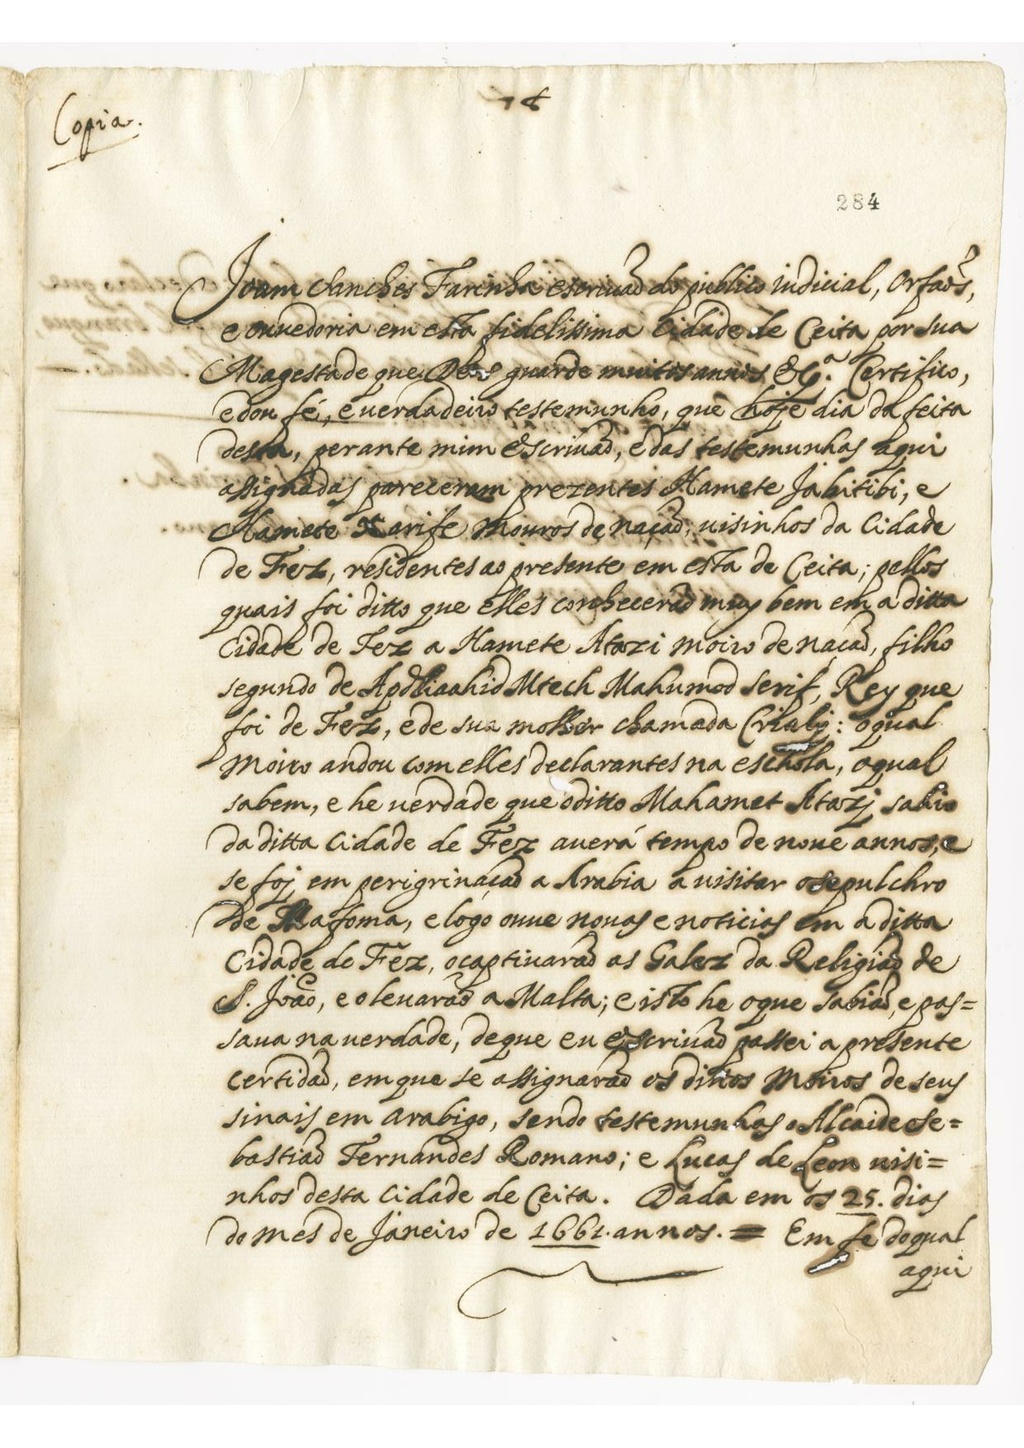 Copia.
284
Joam Sanches Farinha escrivaõ do publico iudicial, Orfaõs,
e ouvedoria em esta fidelissima Cidade de Ceita por sua
Magestade que Deos guarde muitos annos &c.ª Certifico,
e dou fé, e verdadeiro testemunho, que hoje dia da feita
desta, perante mim escrivaõ, e das testemunhas aqui
assignadas pareceram prezentes Hamete Jabitibi, e
Hamete Xarife Mouros de naçaõ, uisinhos da Cidade
de Fez, residentes ao presente em esta de Ceita; pellos
quais foi ditto que elles conheceraõ muy bem em a ditta
Cidade de Fez a Hamete Atazi moiro de naçaõ, filho
segundo de Mtech Mahumed Serif, Rey que
foi de Fez, e de sua molher chamada : o qual
Moiro andou com elles declarantes na eschola, o qual
sabem, e he verdade que o ditto Mahamet Atazj sahio
da ditta Cidade de Fez averá tempo de noue annos, e
se foj em perigrinaçaõ a Arabia a uisitar o sepulchro
de Mafoma, e logo ouue nouas e noticias em a ditta
Cidade de Fez, o captiuaraõ as Galez da Religiaõ de
S. Joaõ, e o leuaraõ a Malta; e isto he o que sabiaõ, e pas=
saua na uerdade, de que eu escriuaõ passei a presente
certidaõ, em que se assignaraõ os dittos Moiros de seus
sinais em arabigo, sendo testemunhas o Alcaide Se=
bastiaõ Fernandes Romano; e Lucas de Leon uisi=
nhos desta Cidade de Ceita. Dada em os 25. dias
do mes de Janeiro de 1661. annos. = Em fe do qual
aqui